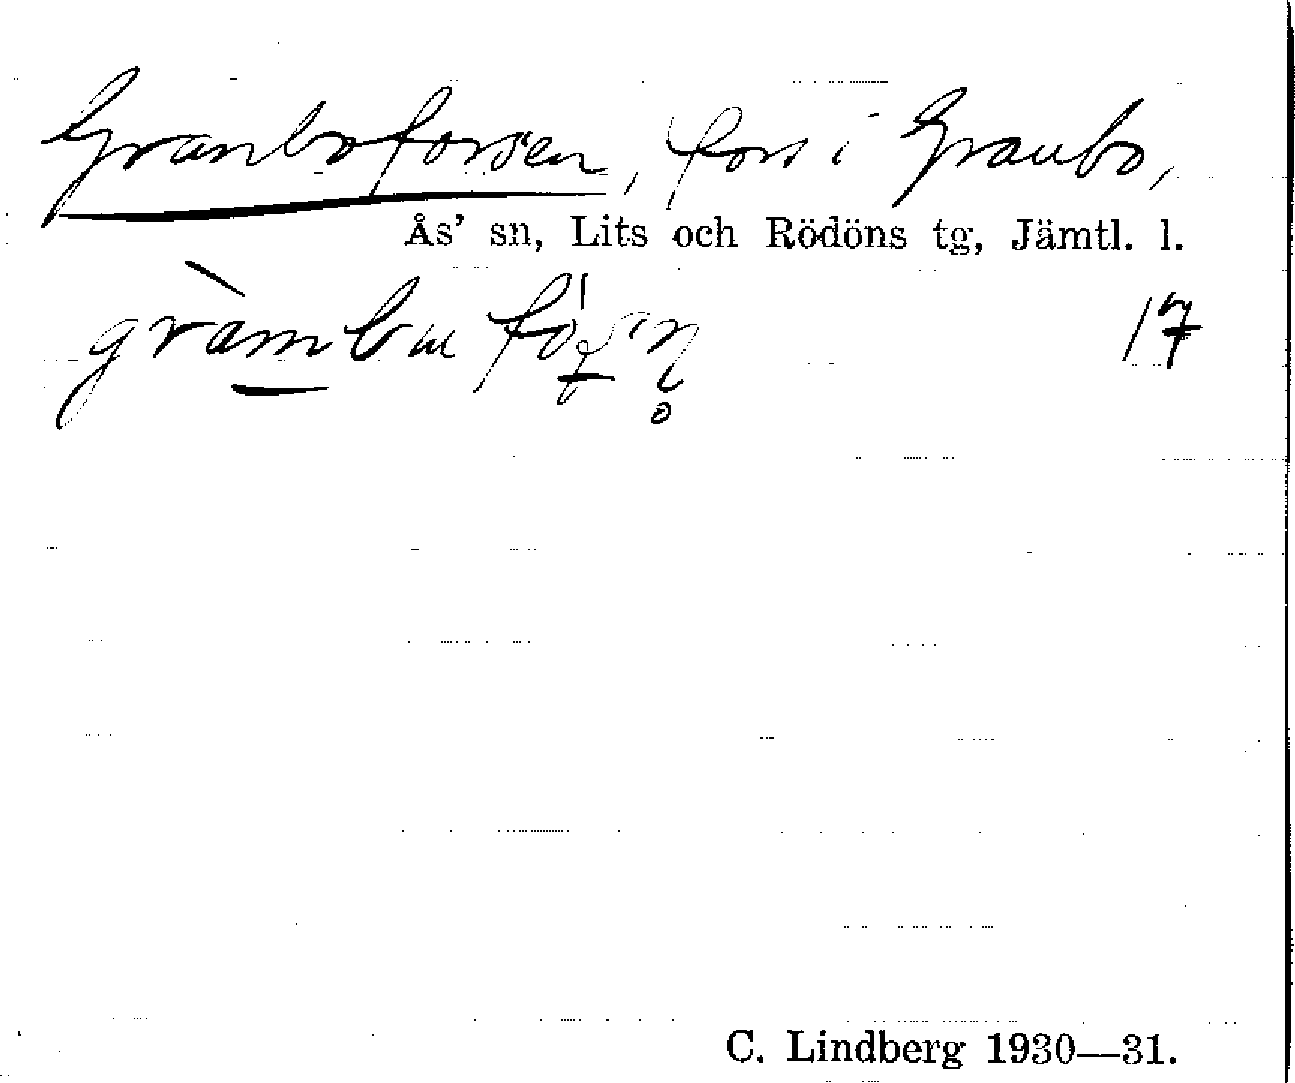 Granboforsen, fors i Granbo,
Ås' sn, Lits och Rödöns tg, Jämtl. l.
17
C. Lindberg 1930—31.